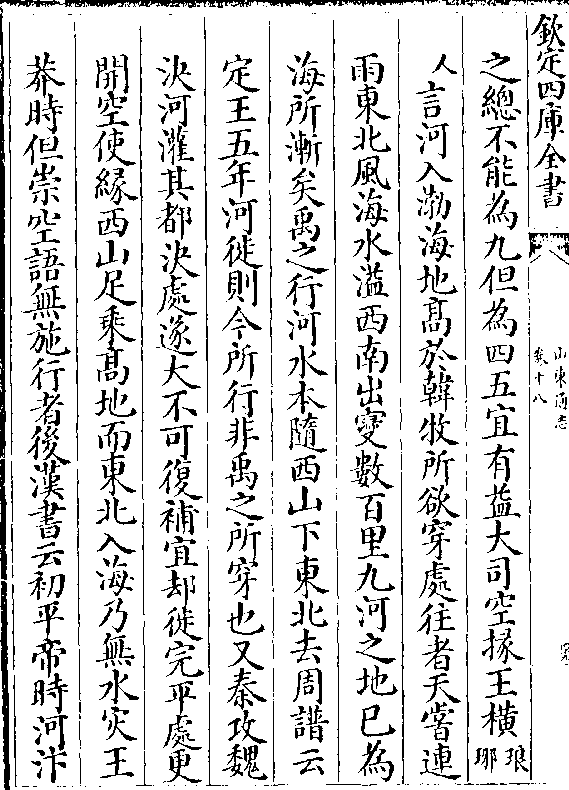 欽定四庫全書
山東通志
卷十八
之總不能為九但為四五宜有益大司空掾王橫琅耶
人言河入渤海地髙於韓牧所欲穿處往者天甞連
雨東北風海水溢西南出寖數百里九河之地已為
海所漸矣禹之行河水本隨西山下東北去周譜云
定王五年河徙則今所行非禹之所穿也又秦攻魏
決河灌其都決處遂大不可復補宜却徙完平處更
開空使縁西山足乘髙地而東北入海乃無水灾王
莽時但崇空語無施行者後漢書云初平帝時河汴